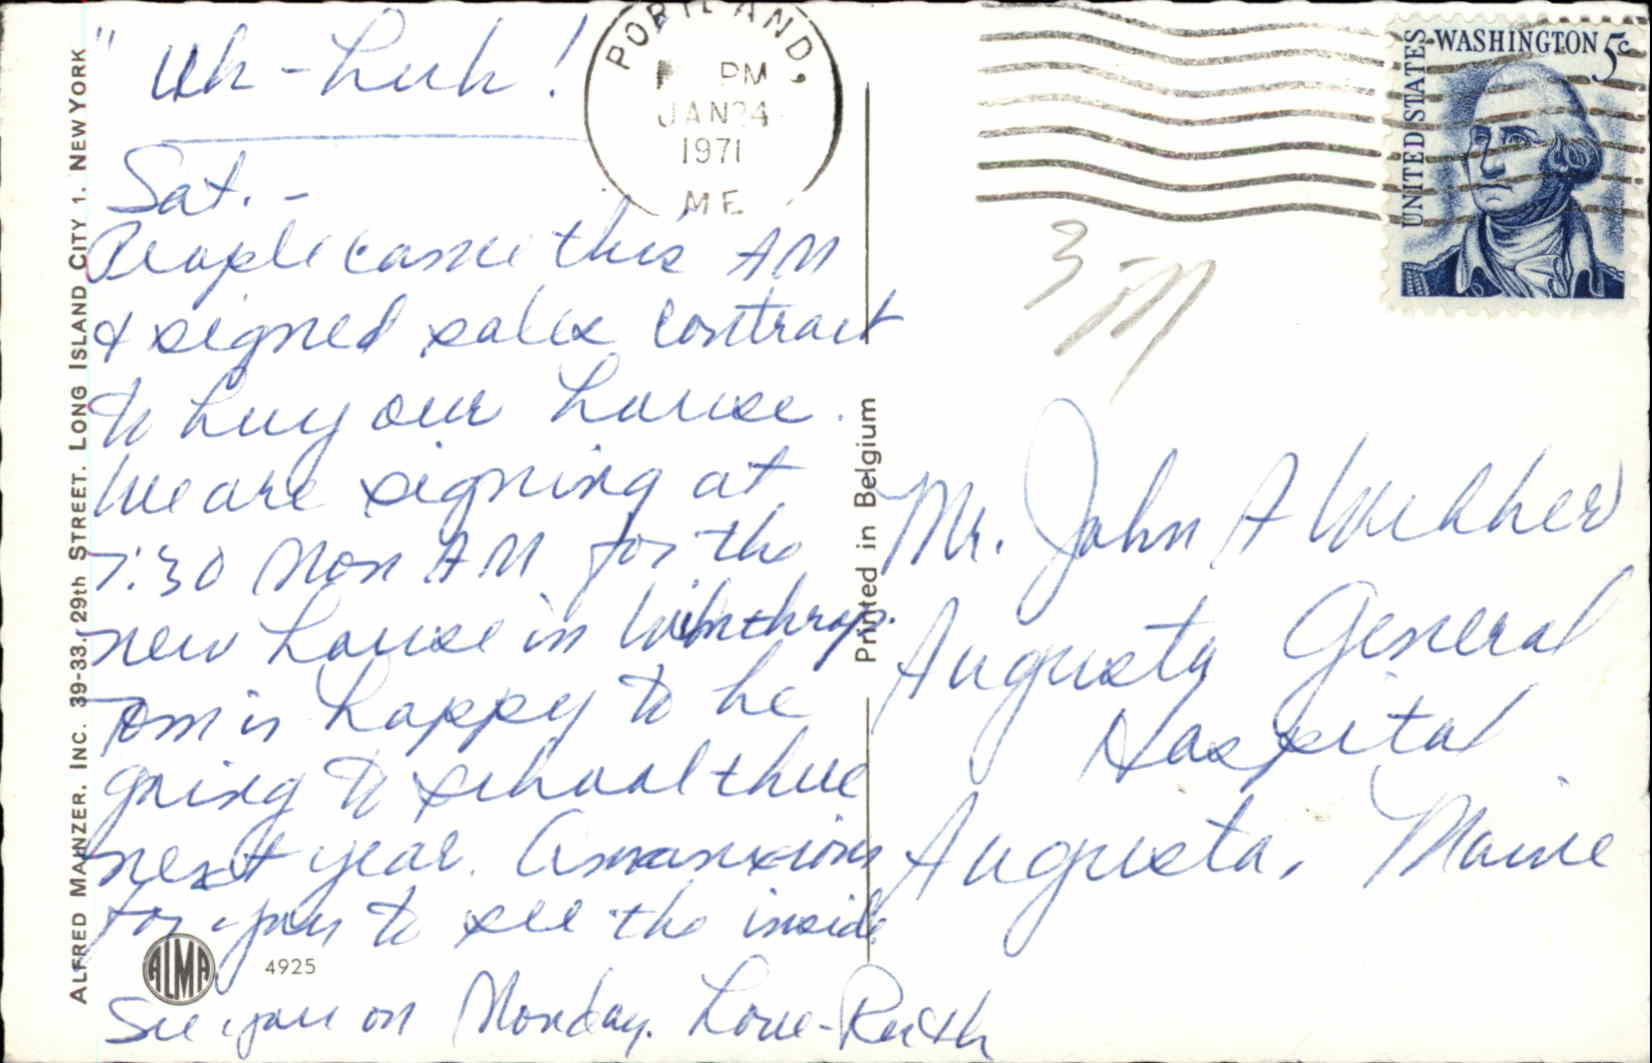 " Uh-huh!
Sat. -
People came this AM
& signed sales contract
to buy our house.
We are signing at
7:30 Mon AM for the
new house in Winthrop.
Tom is happy to be
going to school there
next year. Am anxious
for you to see the inside
See you on Monday. Love-Ruth
ALFRED MAINZER, INC. 39-33, 29th STREET. LONG ISLAND CITY 1. NEW YORK
ALMA
4925
Printed in Belgium
PORTLAND,
PM
JAN 24
1971
ME
UNITED STATES
WASHINGTON 5c
3
Mr. John A Webber
Augusta General
Hospital
Augusta, Maine